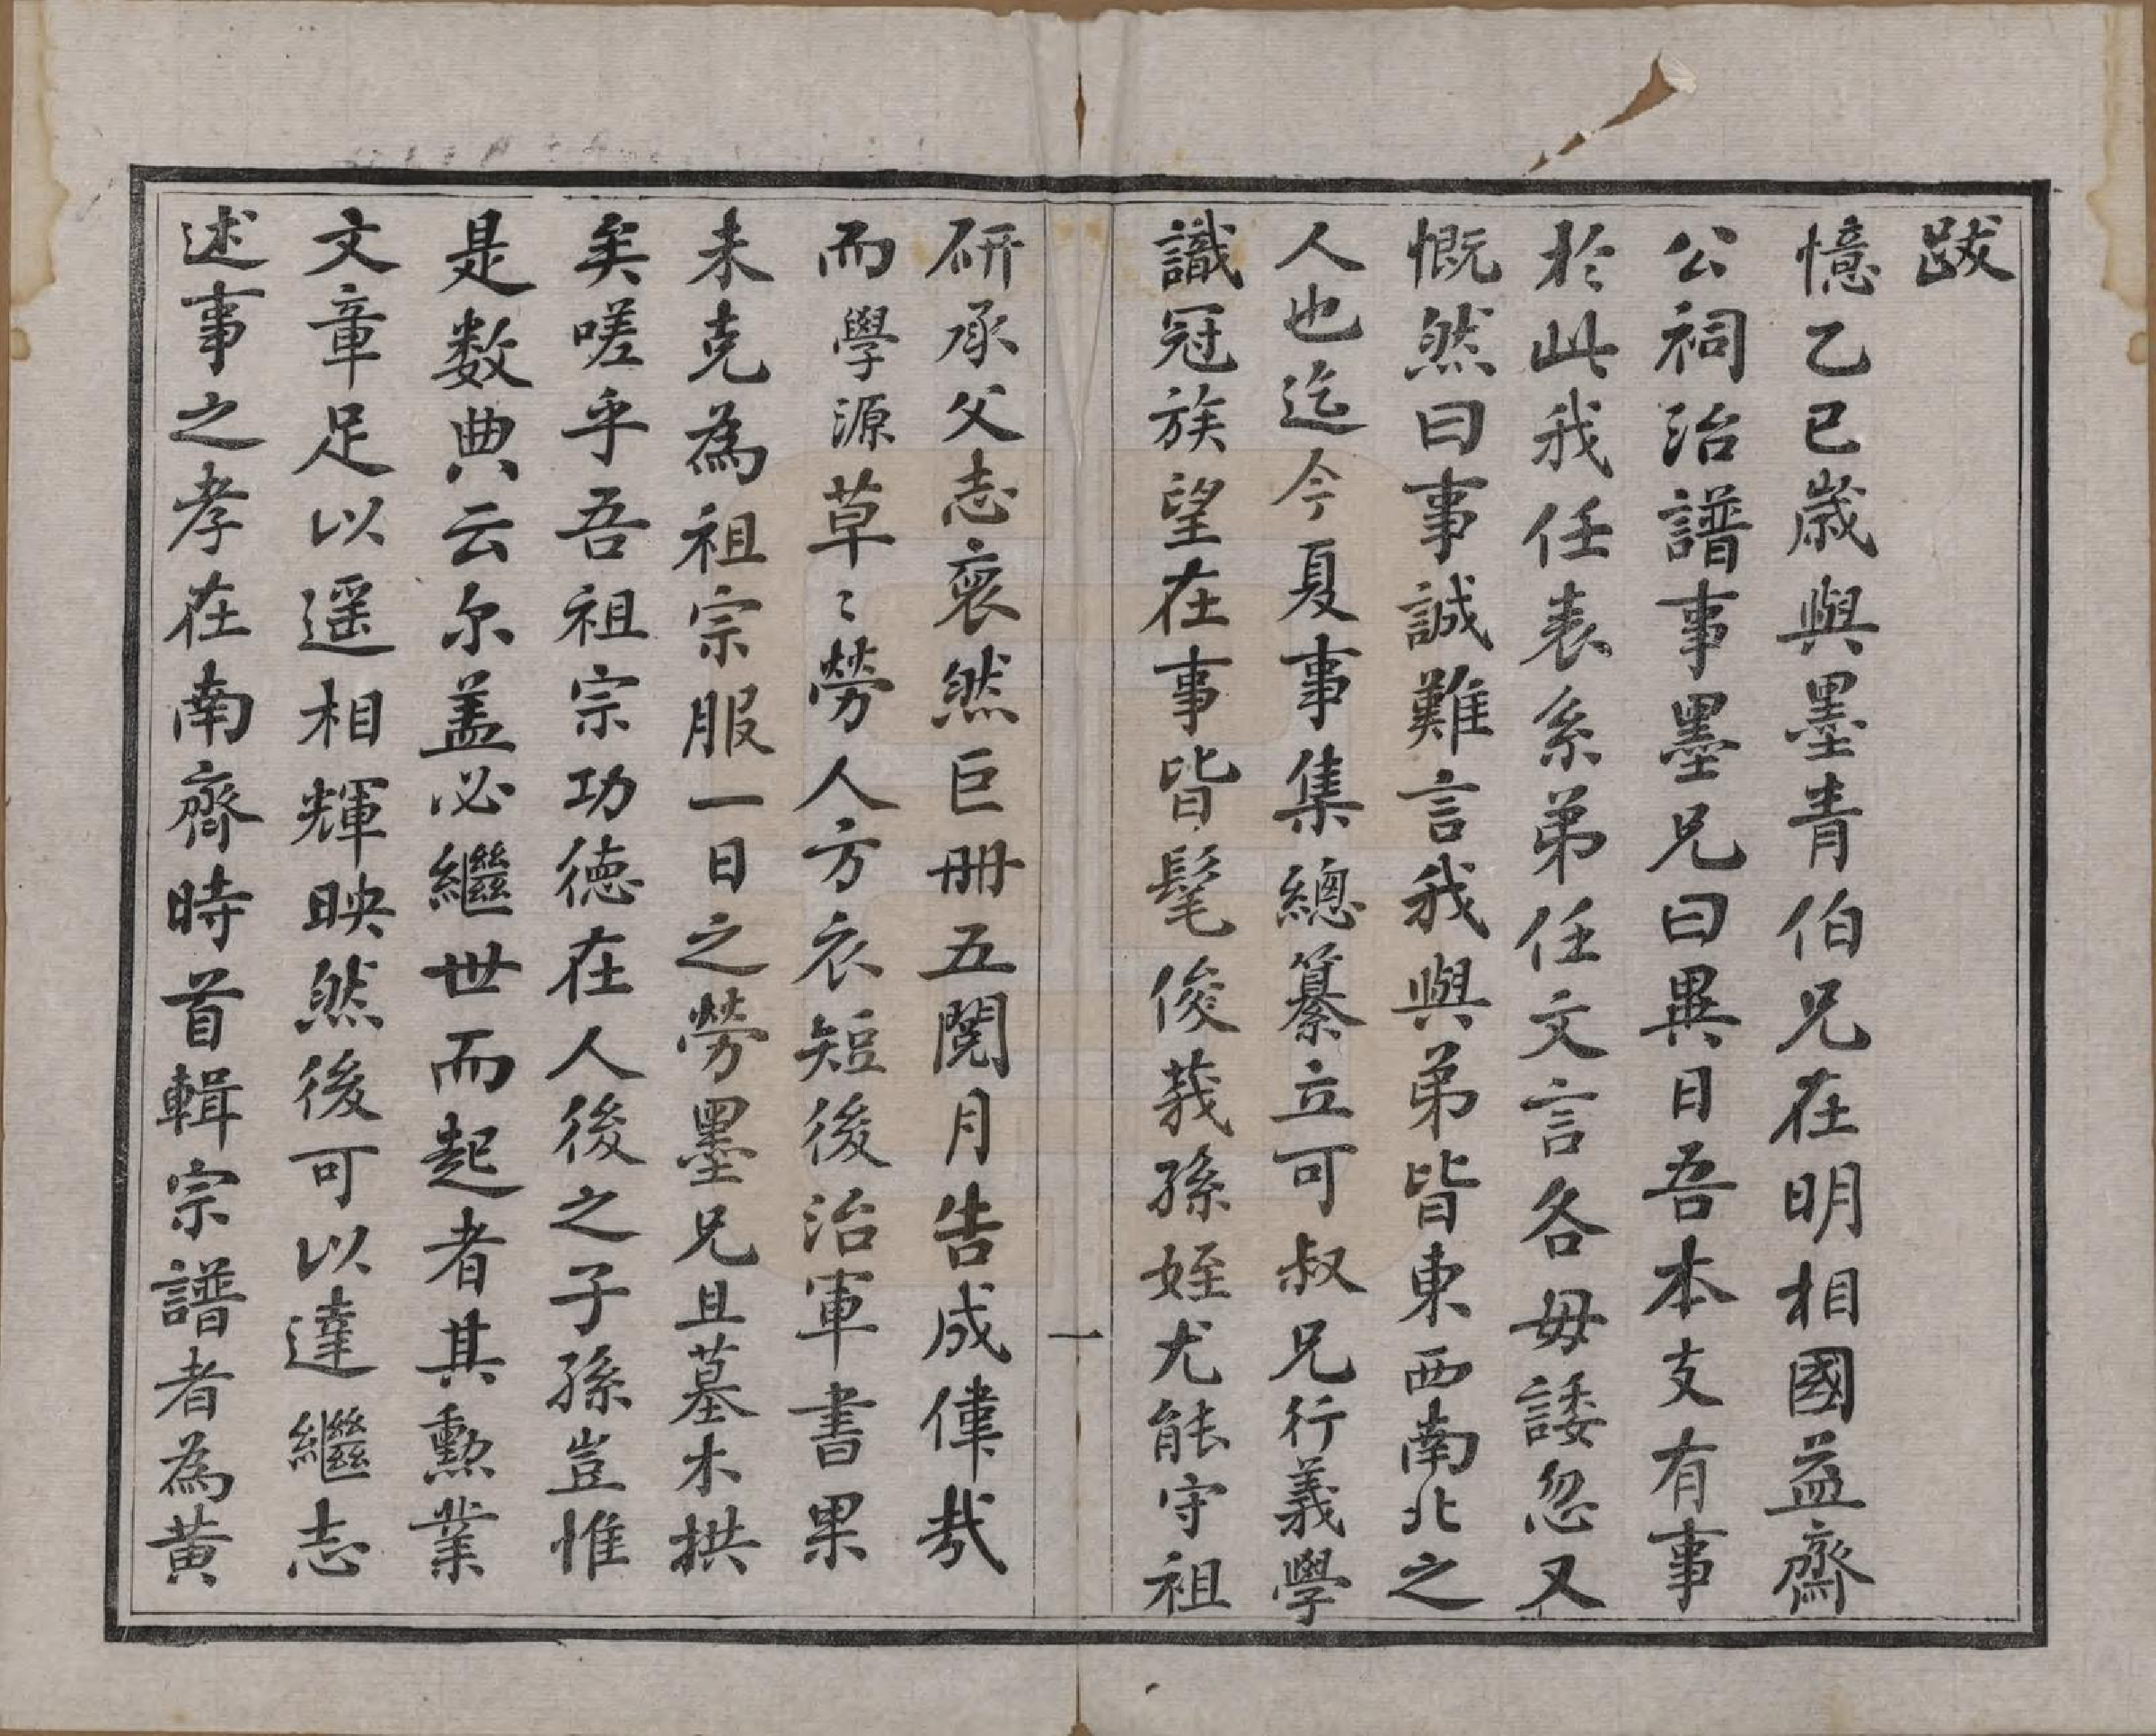 跋
憶乙巳歲與墨青伯兄在明相國益齋
公祠治譜事墨兄曰異日吾本支有事
於此我任表系弟任文言各毋諉忽又
慨然曰事誠難言我與弟皆東西南北之
人也迄今夏事集總纂立可叔兄行義學
識冠族望在事皆髦俊莪孫姪尤能守祖
一
研承父志裒然巨冊五閱月告成偉哉
而學源草〻勞人方衣短後治軍書果
未克為祖宗服一日之勞墨兄且墓木拱
矣嗟乎吾祖宗功德在人後之子孫豈惟
是数典云尔盖必繼世而起者其勲業
文章足以遥相輝映然後可以達繼志
述事之孝在南齊時首輯宗譜者為黄